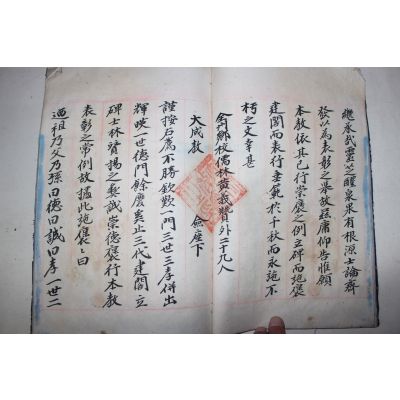 繼承哉靈芝醴泉果有根源士論齊
發以爲表彰之擧故玆庸仰告惟願
本敎依其已行崇褒之例立碑而施褒
建閣而表行垂範於千秋而永施不
朽之文幸甚
鄕校儒林黃義贊外二十九人
大成敎 座下
謹按右薦不勝欽歎一門三世三孝倂出
輝映一世德門餘慶奚止三代建閣立
碑士林贊揚之彝誠崇德褒行本敎
表彰之常例故據此施褒曰
迺祖乃父乃孫曰德曰誠曰孝一世二